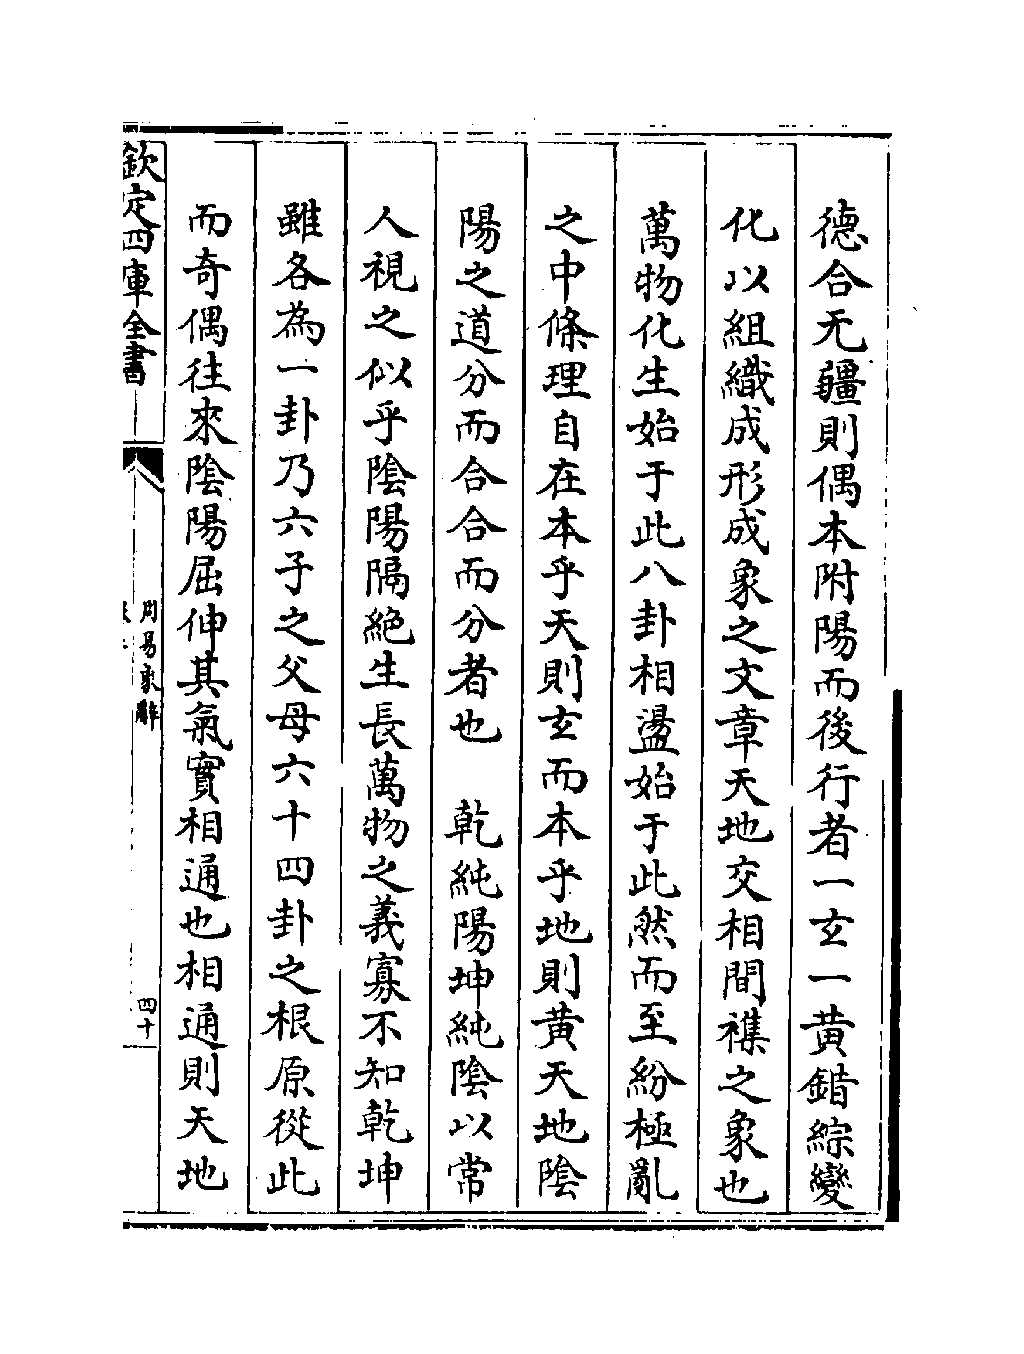 德合无疆則偶本附陽而後行者一玄一黄錯綜變
化以組織成形成象之文章天地交相間襍之象也
萬物化生始于此八卦相盪始于此然而至紛極亂
之中條理自在本乎天則玄而本乎地則黄天地陰
陽之道分而合合而分者也　乾純陽坤純陰以常
人視之似乎陰陽隔絶生長萬物之義寡不知乾坤
雖各為一卦乃六子之父母六十四卦之根原從此
而奇偶往來陰陽屈伸其氣實相通也相通則天地
欽定四庫全書
周易象辭
四十